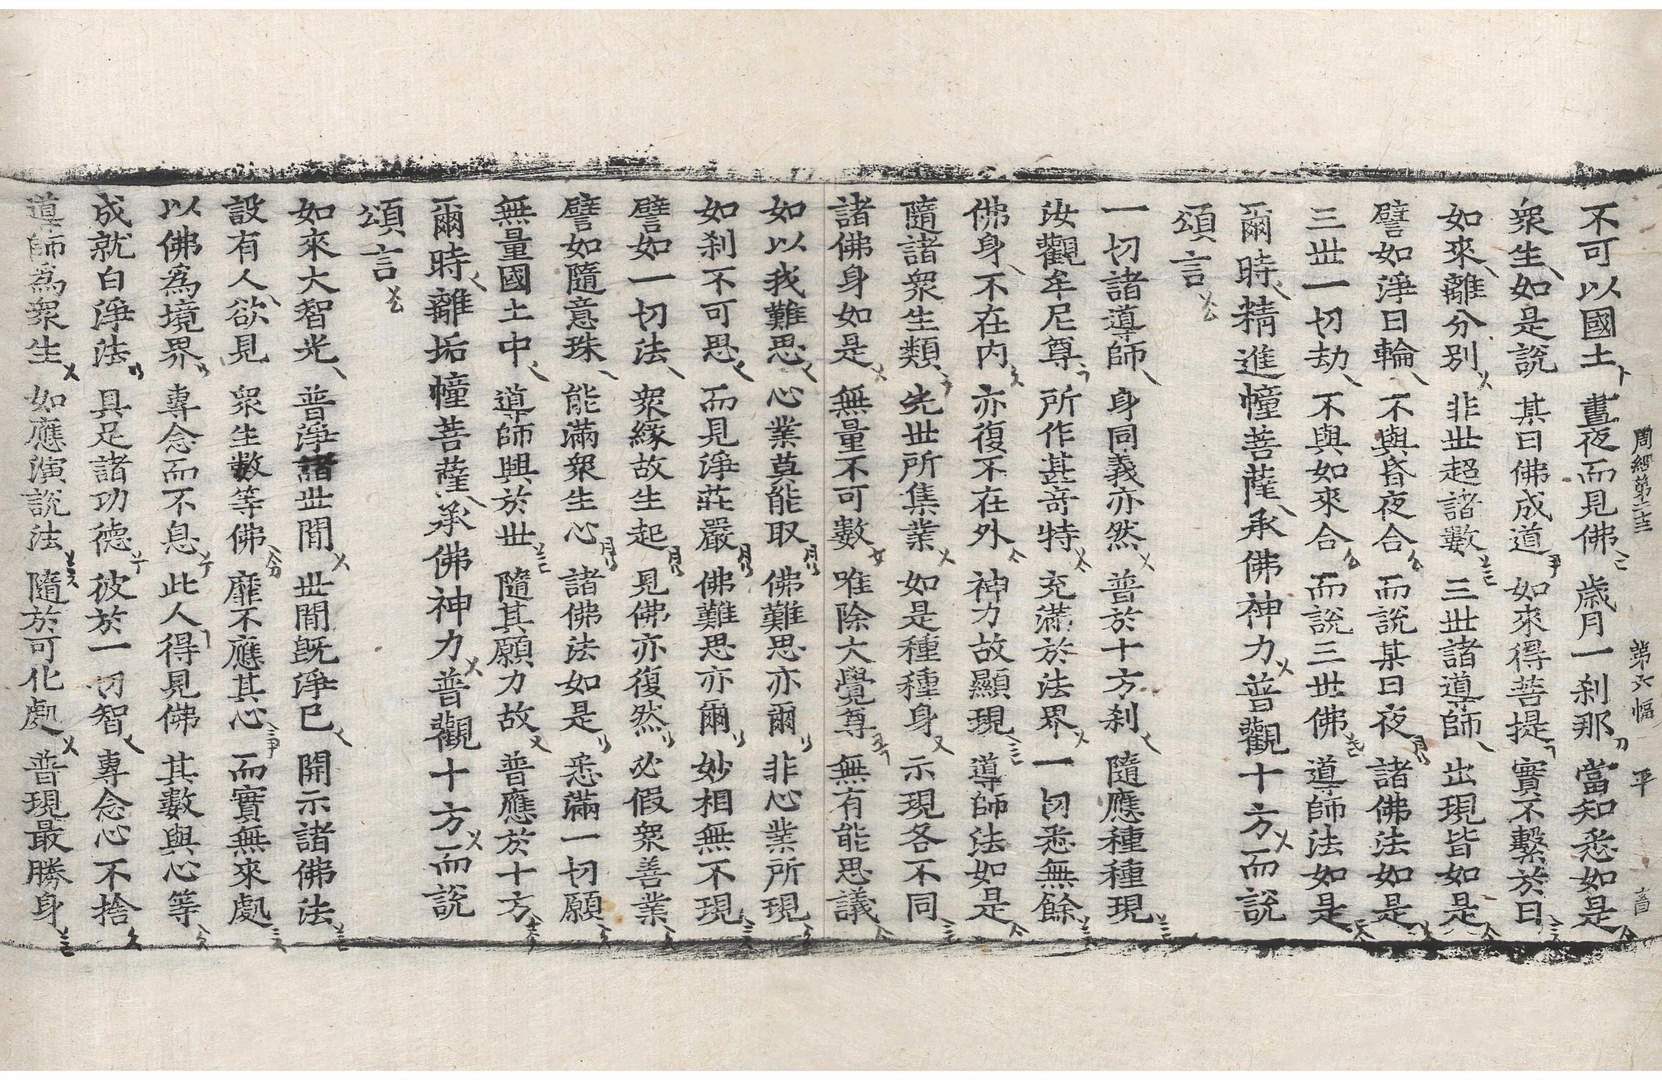 周經第二十三 第六幅 平
不可以國土 晝夜而見佛 歲月一刹那 當知悉如是
衆生如是說 某日佛成道 如來得菩提 實不繫於日
如來離分別 非世超諸數 三世諸導師 出現皆如是
譬如淨日輪 不與昏夜合 而說某日夜 諸佛法如是
三世一切劫 不與如來合 而說三世佛 導師法如是
爾時精進幢菩薩承佛神力普觀十方而說
頌言
一切諸導師 身同義亦然 普於十方刹 隨應種種現
汝觀牟尼尊 所作甚奇特 充滿於法界 一切悉無餘
佛身不在内 亦復不在外 神力故顯現 導師法如是
隨諸衆生類 先世所集業 如是種種身 示現各不同
諸佛身如是 無量不可數 唯除大覺尊 無有能思議
如以我難思 心業莫能取 佛難思亦爾 非心業所現
如刹不可思 而見淨莊嚴 佛難思亦爾 妙相無不現
譬如一切法 衆緣故生起 見佛亦復然 必假衆善業
譬如隨意珠 能滿衆生心 諸佛法如是 悉滿一切願
無量國土中 導師興於世 隨其願力故 普應於十方
爾時離垢幢菩薩承佛神力普觀十方而說
頌言
如來大智光 普淨諸世間 世間旣淨已 開示諸佛法
設有人欲見 衆生數等佛 靡不應其心 而實無來處
以佛爲境界 專念而不息 此人得見佛 其數與心等
成就白淨法 具足諸功德 彼於一切智 專念心不捨
導師爲衆生 如應演說法 隨於可化處 普現最勝身